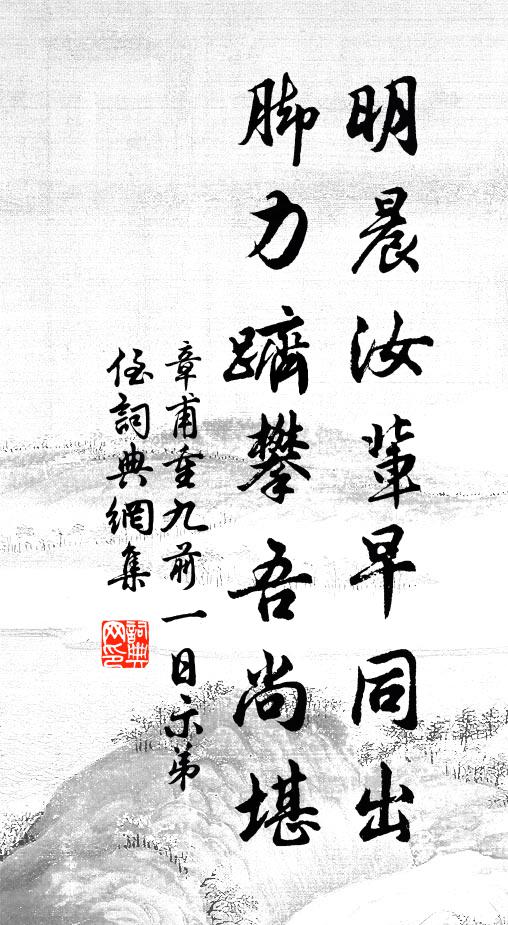 明晨汝輩早同出
脚力躋攀吾尚堪
章甫重九前一日示弟
侄詞典網集
詞典
网印